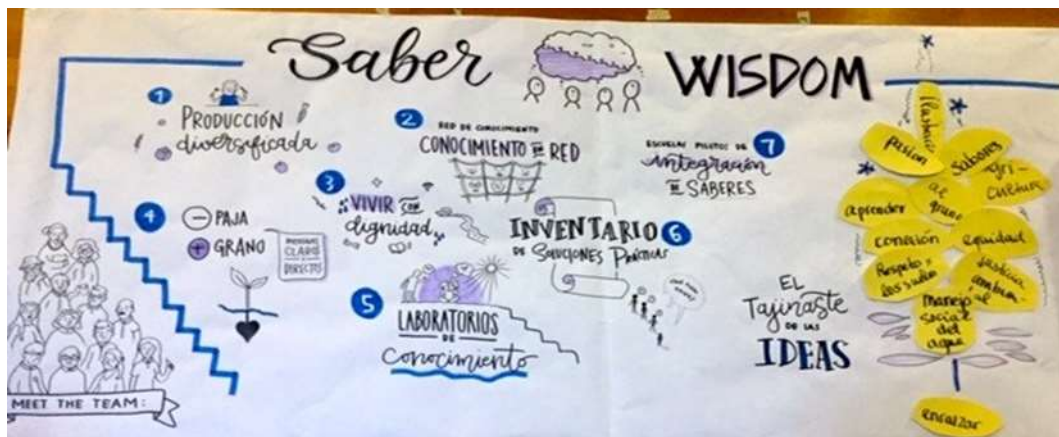 Saber
WISDOM
1
PRODUCCIÓN
diversificada
2
RED DE CONOCIMIENTO
CONOCIMIENTO EN RED
3
VIVIR CON
dignidad
4
PAJA
GRANO
CLARO
DIRECTOS
5
LABORATORIOS
DE
Conocimiento
INVENTARIO 6
DE SOLUCIONES PRÁCTICAS
ESCUELAS PILOTOS DE 7
integración
DE SABERES
EL
Tajinaste
DE LAS
IDEAS
pasión
sabores
aprender
al
grano
agri-
cultura
conexión
equidad
Respeto a
los suelos
justicia
manejo
social
del
agua
enraizar
MEET THE TEAM: